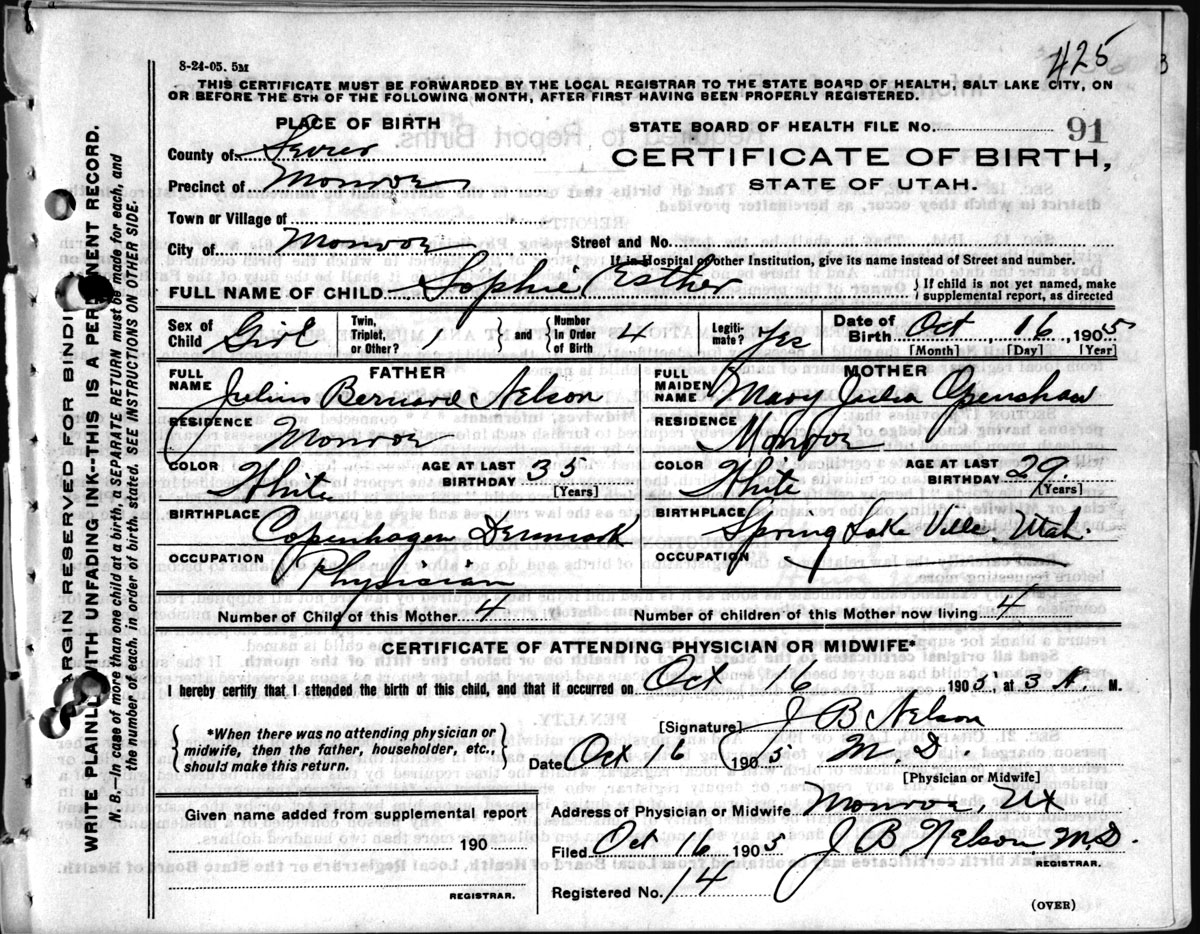 425
8-24-05. 5M
THIS CERTIFICATE MUST BE FORWARDED BY THE LOCAL REGISTRAR TO THE STATE BOARD OF HEALTH, SALT LAKE CITY, ON
OR BEFORE THE 5TH OF THE FOLLOWING MONTH, AFTER FIRST HAVING BEEN PROPERLY REGISTERED.
PLACE OF BIRTH
STATE BOARD OF HEALTH FILE No. 91
County of Sevier
CERTIFICATE OF BIRTH,
Precinct of Monroe
STATE OF UTAH.
Town or Village of
City of Monroe Street and No.
If in Hospital or other Institution, give its name instead of Street and number.
FULL NAME OF CHILD Sophie Esther { If child is not yet named, make
supplemental report, as directed
Sex of Child Girl Twin, Triplet, or Other? 1 } and { Number In Order of Birth 4 Legiti- mate? Yes Date of Birth Oct 16 1905
[Month] [Day] [Year]
FATHER MOTHER
FULL NAME Julius Bernard Nelson FULL MAIDEN NAME Mary Julia Openshaw
RESIDENCE Monroe RESIDENCE Monroe
COLOR White AGE AT LAST BIRTHDAY 35 [Years] COLOR White AGE AT LAST BIRTHDAY 29. [Years]
BIRTHPLACE Copenhagen Denmark BIRTHPLACE Spring Lake Ville. Utah.
OCCUPATION Physician OCCUPATION
Number of Child of this Mother 4 Number of children of this Mother now living 4
CERTIFICATE OF ATTENDING PHYSICIAN OR MIDWIFE*
I hereby certify that I attended the birth of this child, and that it occurred on Oct 16 1905, at 3 A. M.
*When there was no attending physician or
midwife, then the father, householder, etc.,
should make this return.
[Signature] J B Nelson
Date Oct 16 1905 M. D.
[Physician or Midwife]
Given name added from supplemental report
190
REGISTRAR.
Address of Physician or Midwife Monroe, Ut
Filed Oct 16 1905 J B Nelson M.D.
REGISTRAR.
Registered No. 14
(OVER)
MARGIN RESERVED FOR BINDI
WRITE PLAINLY WITH UNFADING INK--THIS IS A PERMANENT RECORD.
N. B.—In case of more than one child at a birth, a SEPARATE RETURN must be made for each, and
the number of each, in order of birth, stated. SEE INSTRUCTIONS ON OTHER SIDE.